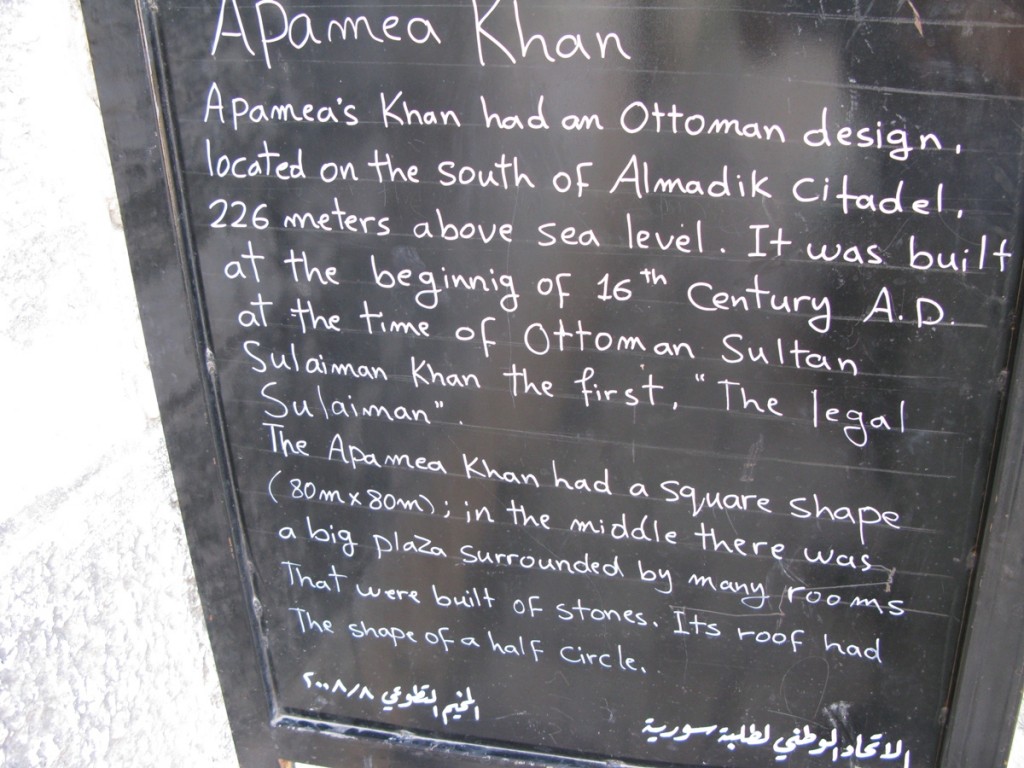 Apamea Khan
Apamea's Khan had an Ottoman design,
located on the south of Almadik Citadel,
226 meters above sea level. It was built
at the beginnig of 16th Century A.D.
at the time of Ottoman Sultan
Sulaiman Khan the first, "The legal
Sulaiman".
The Apamea Khan had a square shape
(80m x 80m); in the middle there was
a big plaza surrounded by many rooms
That were built of stones. Its roof had
The shape of a half circle.
المخيم التطوعي ٢٠٠٨/٨
الاتحاد الوطني لطلبة سورية